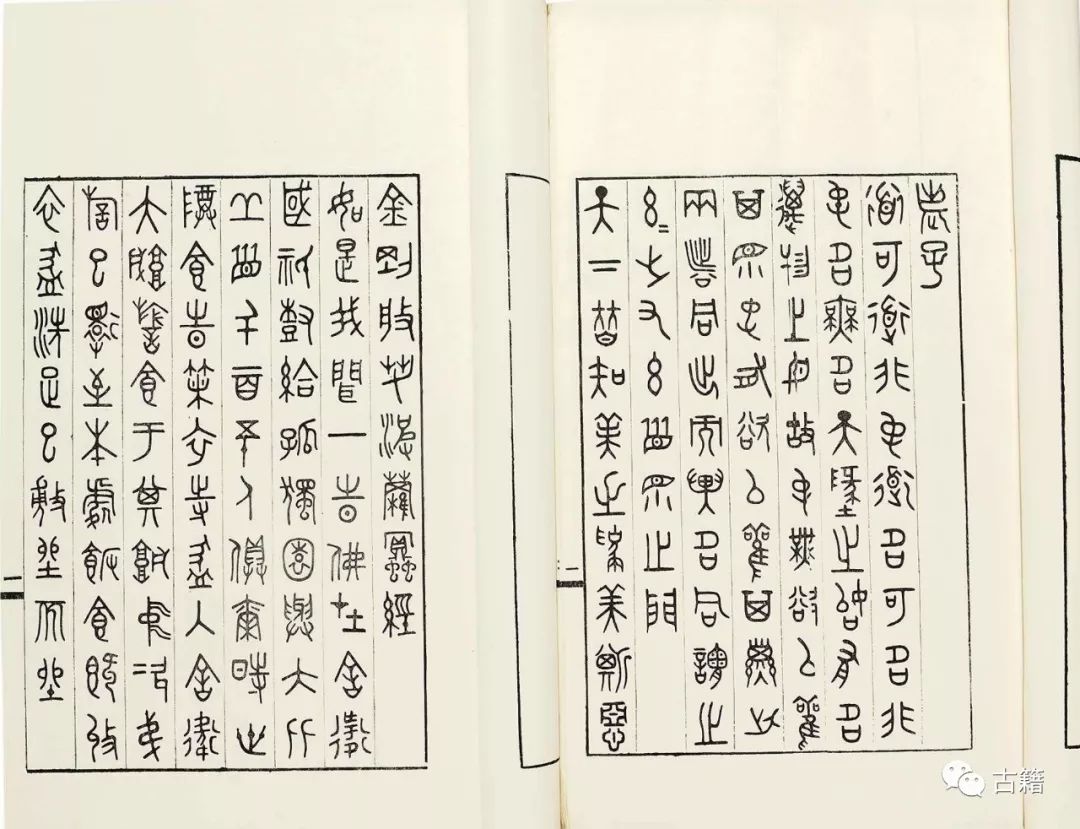 老子
道可道非常道名可名非
常名無名天地之始有名
萬物之母故常無欲以觀
其妙常有欲以觀其徼此
兩者同出而異名同謂之
玄玄之又玄眾妙之門
天下皆知美之為美斯惡
一
金剛般若波羅蜜經
如是我聞一時佛在舍衛
國祇樹給孤獨園與大比
丘眾千二百五十人俱爾時世
尊食時著衣持鉢入舍衛
大城乞食于其城中次第
乞已還至本處飯食訖收
衣鉢洗足已敷坐而坐
二
古籍